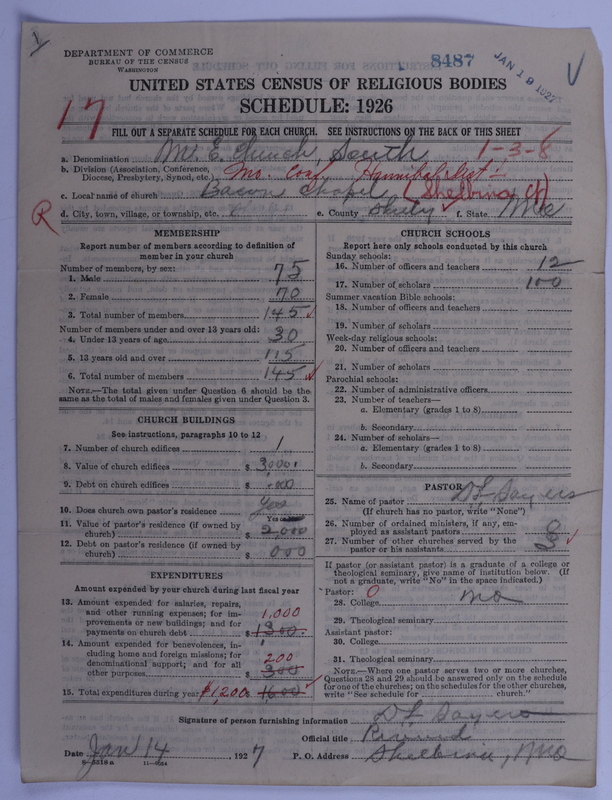 DEPARTMENT OF COMMERCE
BUREAU OF THE CENSUS
WASHINGTON
8487
JAN 19 1927
UNITED STATES CENSUS OF RELIGIOUS BODIES
SCHEDULE: 1926
17
FILL OUT A SEPARATE SCHEDULE FOR EACH CHURCH. SEE INSTRUCTIONS ON THE BACK OF THIS SHEET
a. Denomination M. E. Church, South 1-3-8
b. Division (Association, Conference, Diocese, Presbytery, Synod, etc.) Mo. Conf Hannibal dist
c. Local name of church Bacon Chapel (Shelbina
R
d. City, town, village, or township, etc. e. County Shelby f. State Mo
MEMBERSHIP
Report number of members according to definition of member in your church
Number of members, by sex:
1. Male 75
2. Female 70
3. Total number of members 145
Number of members under and over 13 years old:
4. Under 13 years of age 30
5. 13 years old and over 115
6. Total number of members 145
NOTE.—The total given under Question 6 should be the same as the total of males and females given under Question 3.
CHURCH BUILDINGS
See instructions, paragraphs 10 to 12
7. Number of church edifices 1
8. Value of church edifices $ 3,000
9. Debt on church edifices $ 000
10. Does church own pastor's residence Yes
Yes or No
11. Value of pastor's residence (if owned by church) $ 2,000
12. Debt on pastor's residence (if owned by church) $ 000
EXPENDITURES
Amount expended by your church during last fiscal year
13. Amount expended for salaries, repairs, and other running expenses; for improvements or new buildings; and for payments on church debt $ 1300 1,000
14. Amount expended for benevolences, including home and foreign missions; for denominational support; and for all other purposes $ 300 200
15. Total expenditures during year $1,200 1600
CHURCH SCHOOLS
Report here only schools conducted by this church
Sunday schools:
16. Number of officers and teachers 12
17. Number of scholars 100
Summer vacation Bible schools:
18. Number of officers and teachers
19. Number of scholars
Week-day religious schools:
20. Number of officers and teachers
21. Number of scholars
Parochial schools:
22. Number of administrative officers
23. Number of teachers—
a. Elementary (grades 1 to 8)
b. Secondary
24. Number of scholars—
a. Elementary (grades 1 to 8)
b. Secondary
PASTOR
25. Name of pastor D L Sayers
(If church has no pastor, write "None")
26. Number of ordained ministers, if any, employed as assistant pastors 0
27. Number of other churches served by the pastor or his assistants 3
If pastor (or assistant pastor) is a graduate of a college or theological seminary, give name of institution below. (If not a graduate, write "No" in the space indicated.)
Pastor: 0
28. College no
29. Theological seminary
Assistant pastor:
30. College
31. Theological seminary
NOTE.—Where one pastor serves two or more churches, Questions 28 and 29 should be answered only on the schedule for one of the churches; on the schedules for the other churches, write "See schedule for church."
Signature of person furnishing information D L Sayers
Official title
Date Jan 14, 1927 P. O. Address Shelbina, Mo